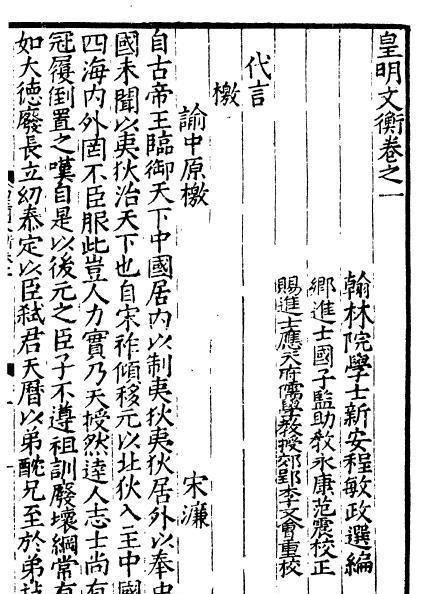 皇明文衡卷之一
翰林院學士新安程敏政選編
鄉進士國子監助教永康范震校正
賜進士應天府儒學教授郊郢李文會重校
代言
檄
諭中原檄 宋濂
自古帝王臨御天下中國居內以制夷狄夷狄居外以奉中
國未聞以夷狄治天下也自宋祚傾移元以北狄入主中國
四海內外罔不臣服此豈人力實乃天授然達人志士尚有
冠履倒置之嘆自是以後元之臣子不遵祖訓廢壞綱常有
如大德廢長立幼泰定以臣弒君天曆以弟酖兄至於弟